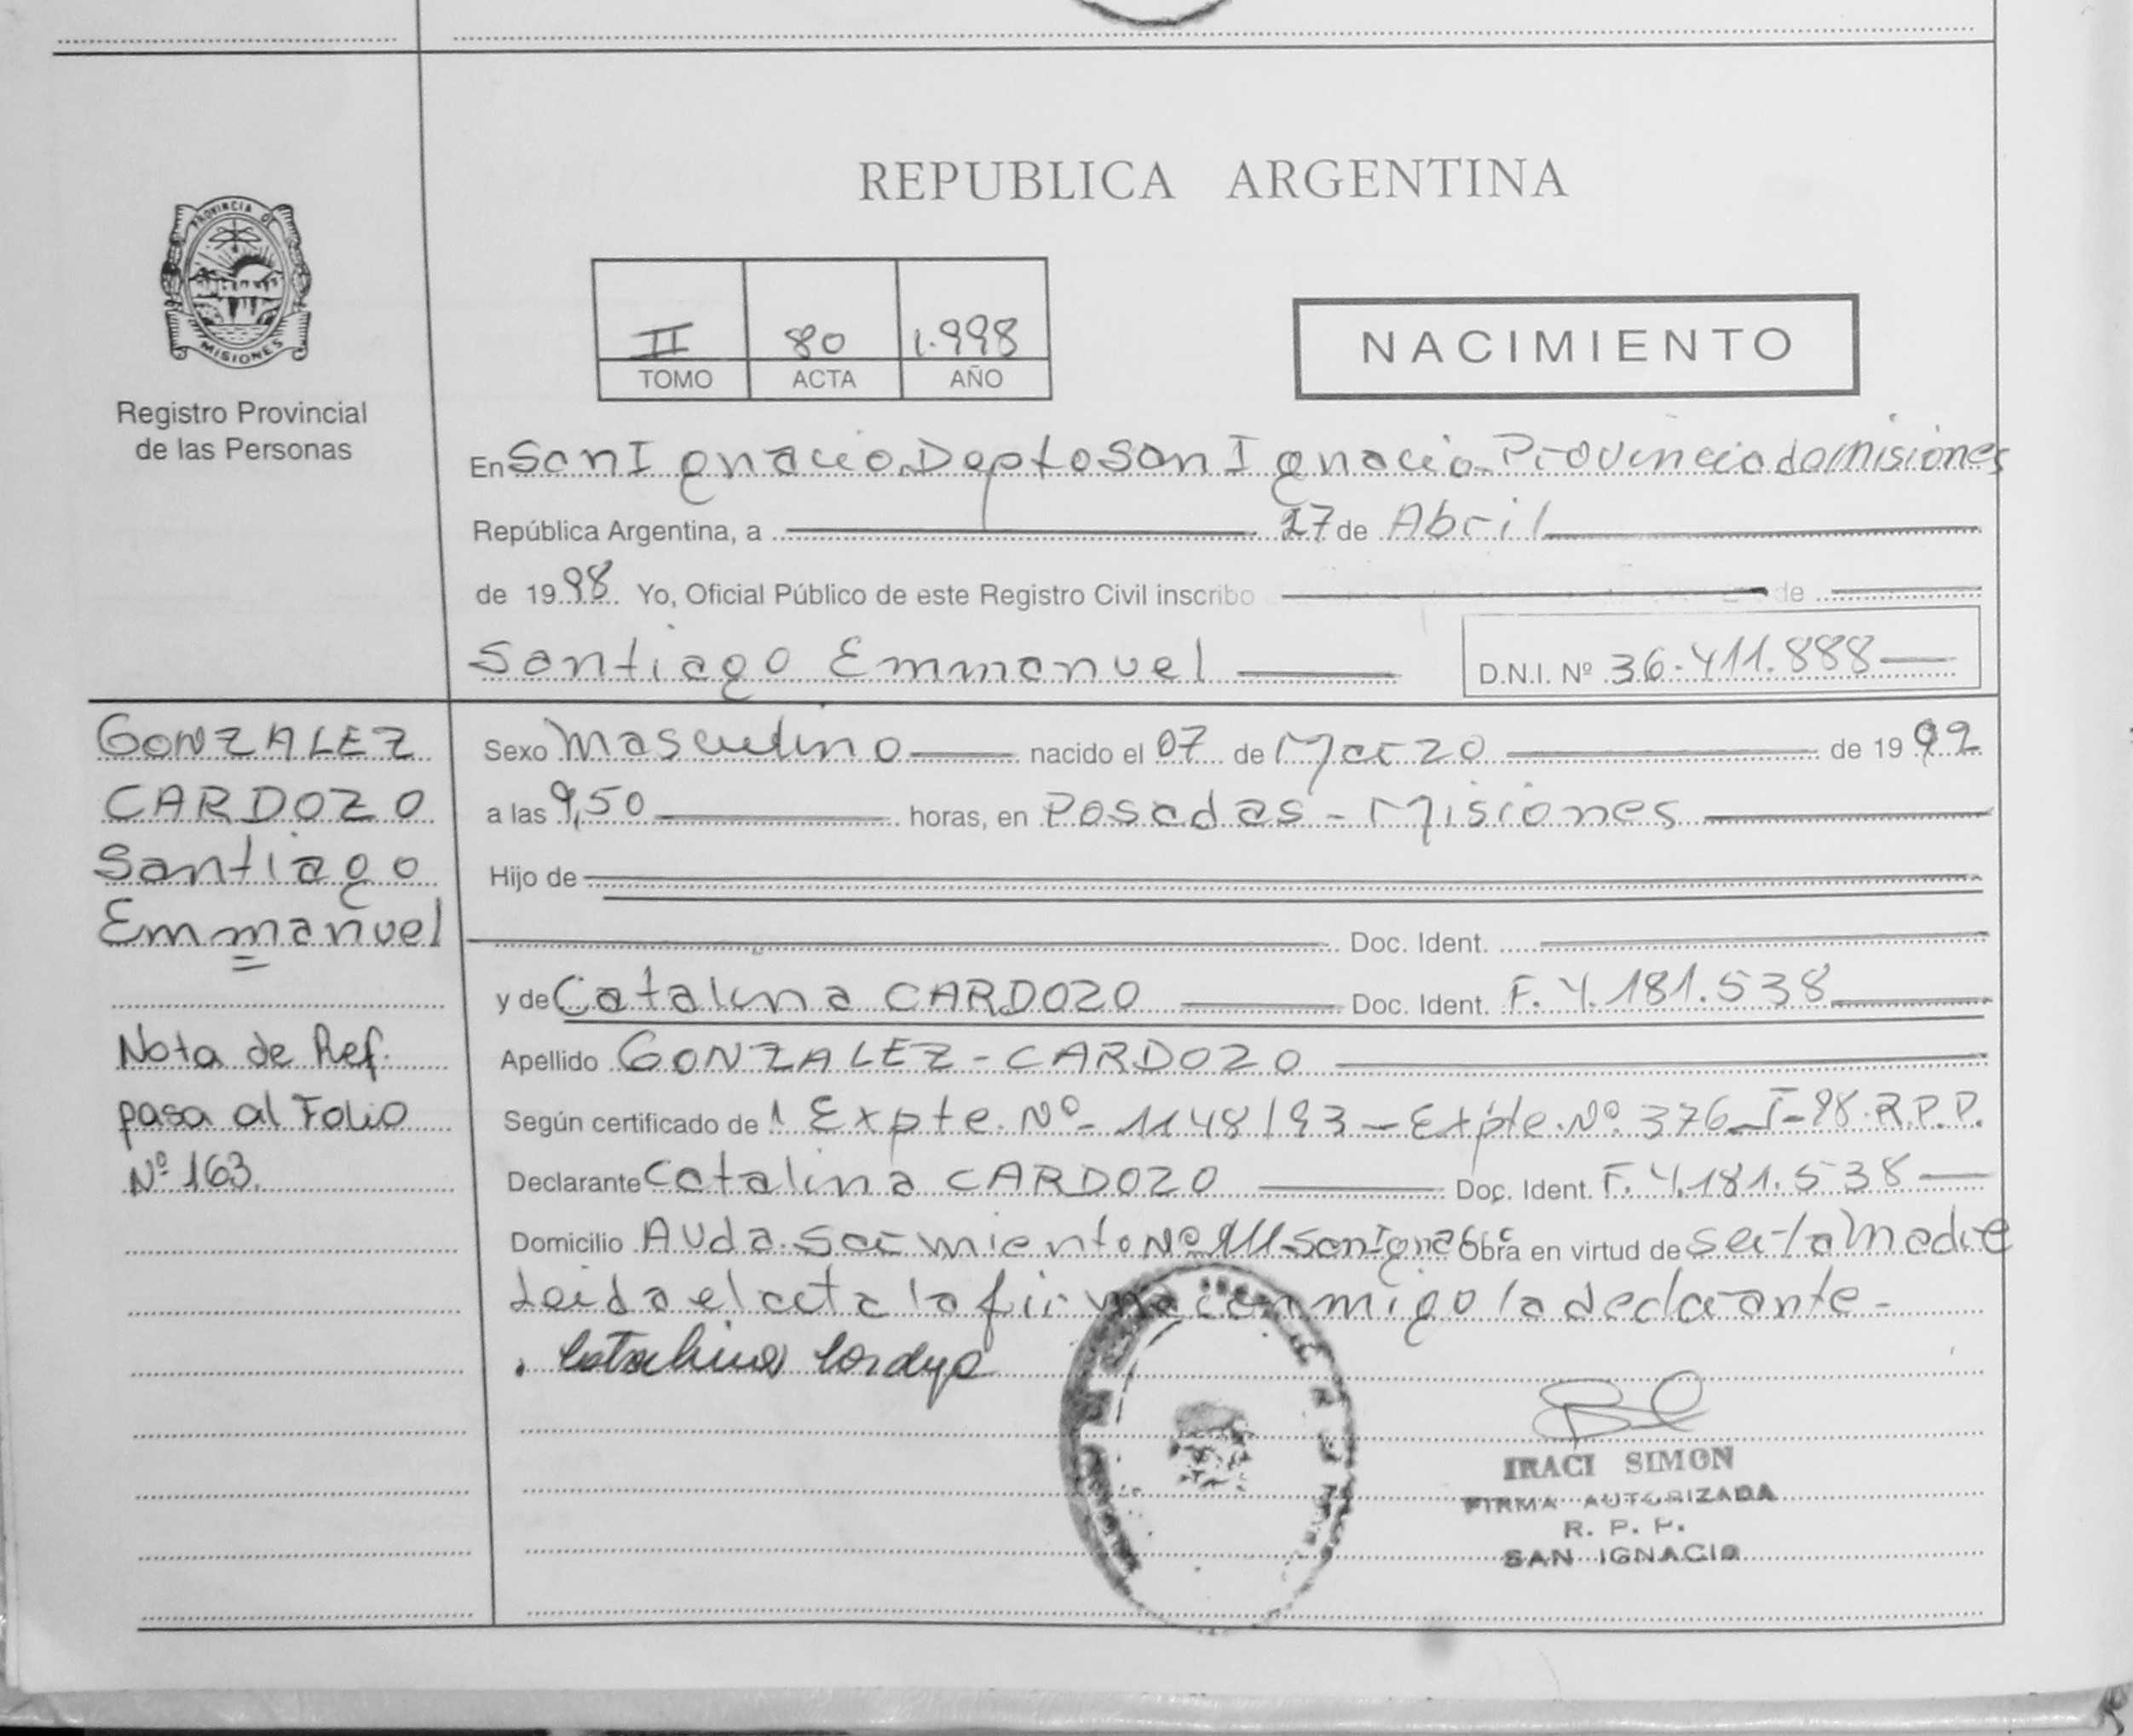 REPUBLICA ARGENTINA
PROVINCIA D
MISIONES
Registro Provincial
de las Personas
II 80 1.998
TOMO ACTA AÑO
NACIMIENTO
En San Ignacio Depto San Ignacio Provincia de Misiones
República Argentina, a 27 de Abril
de 1998 Yo, Oficial Público de este Registro Civil inscribo de
Santiago Emmanuel D.N.I. Nº 36.411.888
GONZALEZ
CARDOZO
Santiago
Emmanuel
Nota de Ref.
pasa al Folio
Nº 163.
Sexo Masculino nacido el 07 de Marzo de 1992
a las 9,50 horas, en Posadas - Misiones
Hijo de
Doc. Ident.
y de Catalina CARDOZO Doc. Ident. F. 4.181.538
Apellido GONZALEZ - CARDOZO
Según certificado de Expte. Nº 1148/93 - Expte. Nº 376-I-98.R.P.P.
Declarante Catalina CARDOZO Doc. Ident. F. 4.181.538
Domicilio Avda. Sarmiento Nº San Ignacio Obra en virtud de ser la Madre
Leida el acta la firma conmigo la declarante -
Catalina Cardozo
IRACI SIMON
FIRMA AUTORIZADA
R. P. P.
SAN IGNACIO